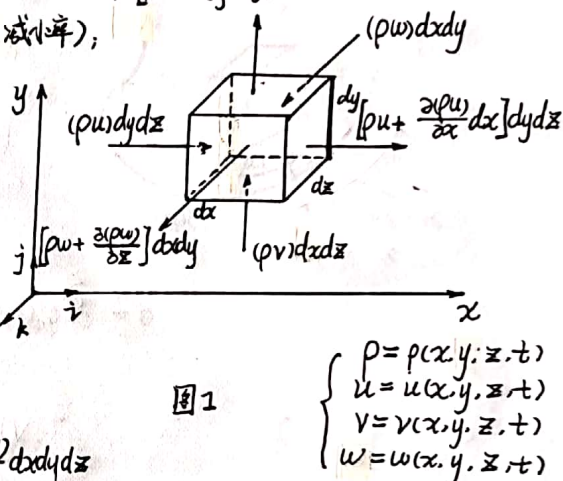 减小率);
(ρw)dxdy
y
dy
(ρu)dydz
[ρu + ∂(ρu)/∂x dx]dydz
dz
dx
j
[ρw + ∂(ρw)/∂z]dxdy
(ρv)dxdz
k
i
x
图1
ρ = ρ(x,y,z,t)
u = u(x,y,z,t)
v = v(x,y,z,t)
w = w(x,y,z,t)
dxdydz